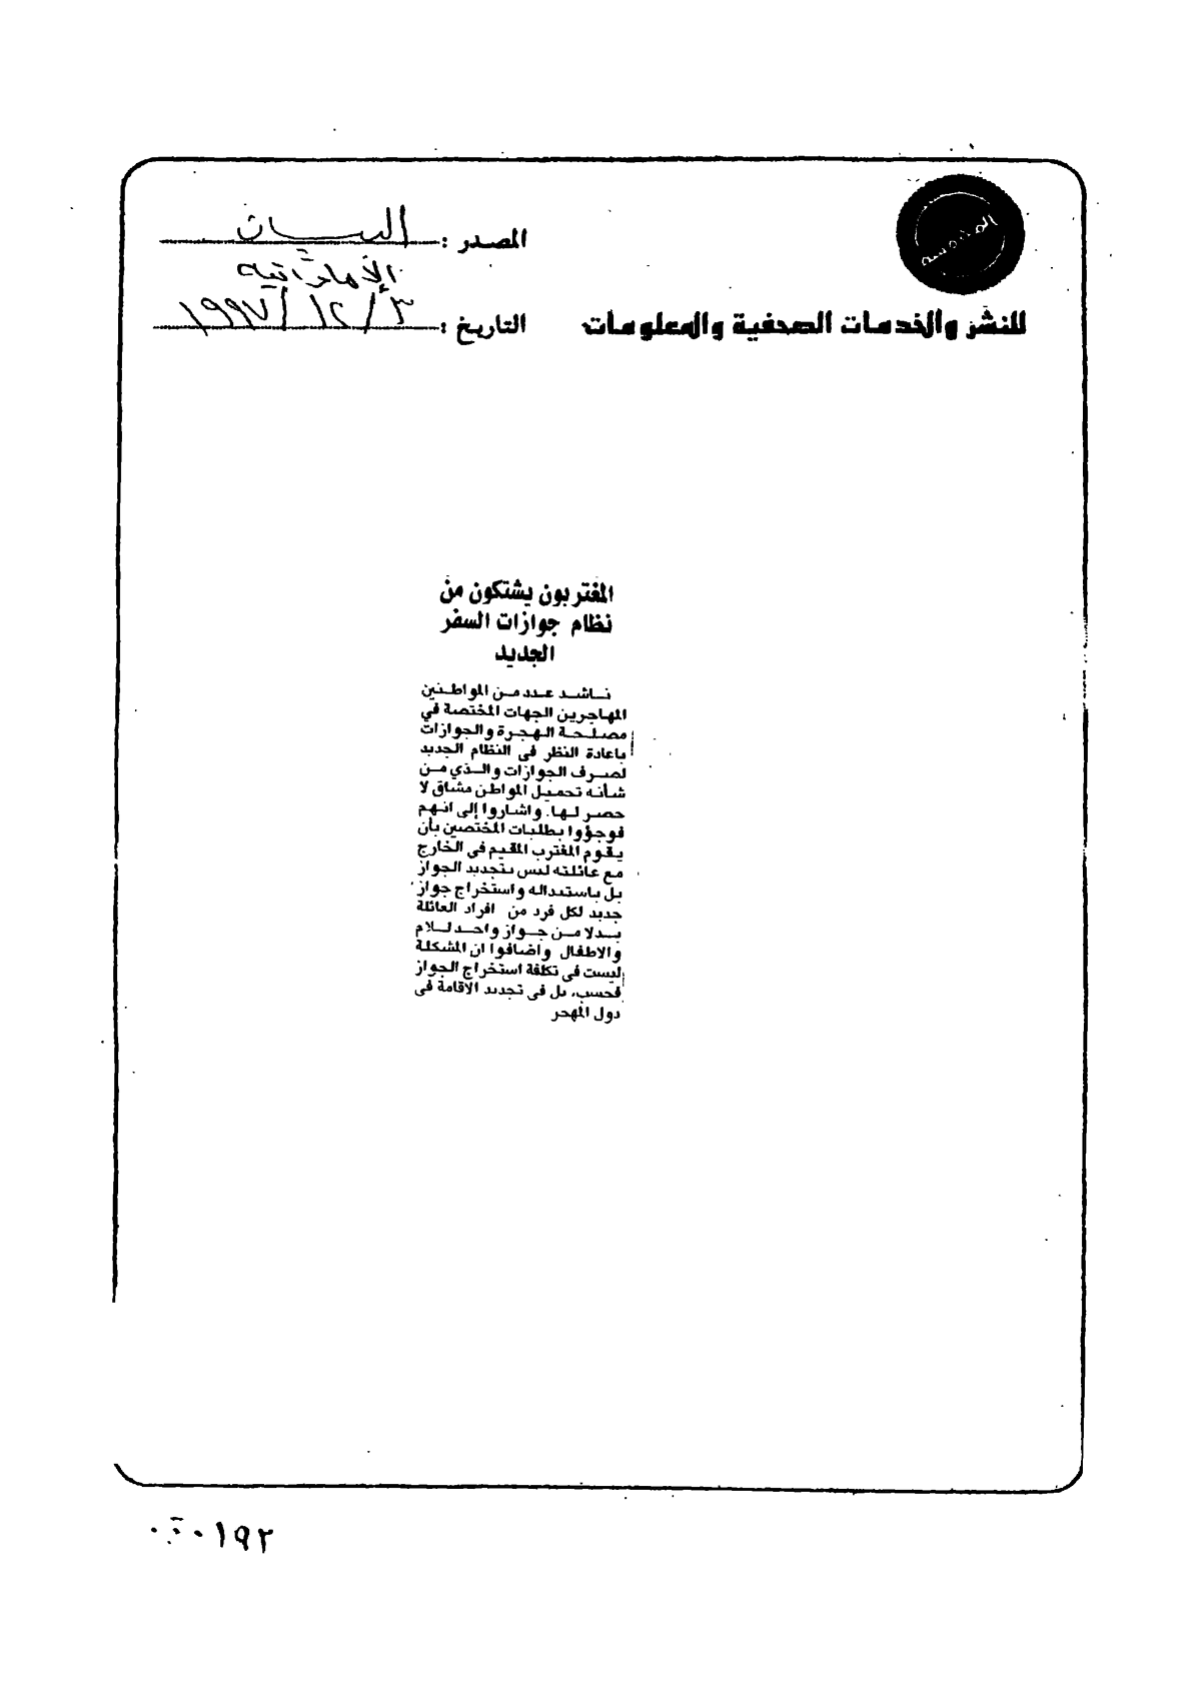 المصدر : البيان
الإماراتية
للنشر والخدمات الصحفية والمعلومات
التاريخ : ٣ / ١٢ / ١٩٩٧
المغتربون يشتكون من
نظام جوازات السفر
الجديد
ناشد عدد من المواطنين
المهاجرين الجهات المختصة في
مصلحة الهجرة والجوازات
باعادة النظر في النظام الجديد
لصرف الجوازات والذي من
شأنه تحميل المواطن مشاق لا
حصر لها. واشاروا إلى انهم
فوجؤوا بطلبات المختصين بأن
يقوم المغترب المقيم في الخارج
مع عائلته ليس بتجديد الجواز
بل باستبداله واستخراج جواز
جديد لكل فرد من افراد العائلة
بدلا من جواز واحد للام
والاطفال واضافوا ان المشكلة
ليست في تكلفة استخراج الجواز
فحسب، بل في تجديد الاقامة في
دول المهجر
٠١٩٢